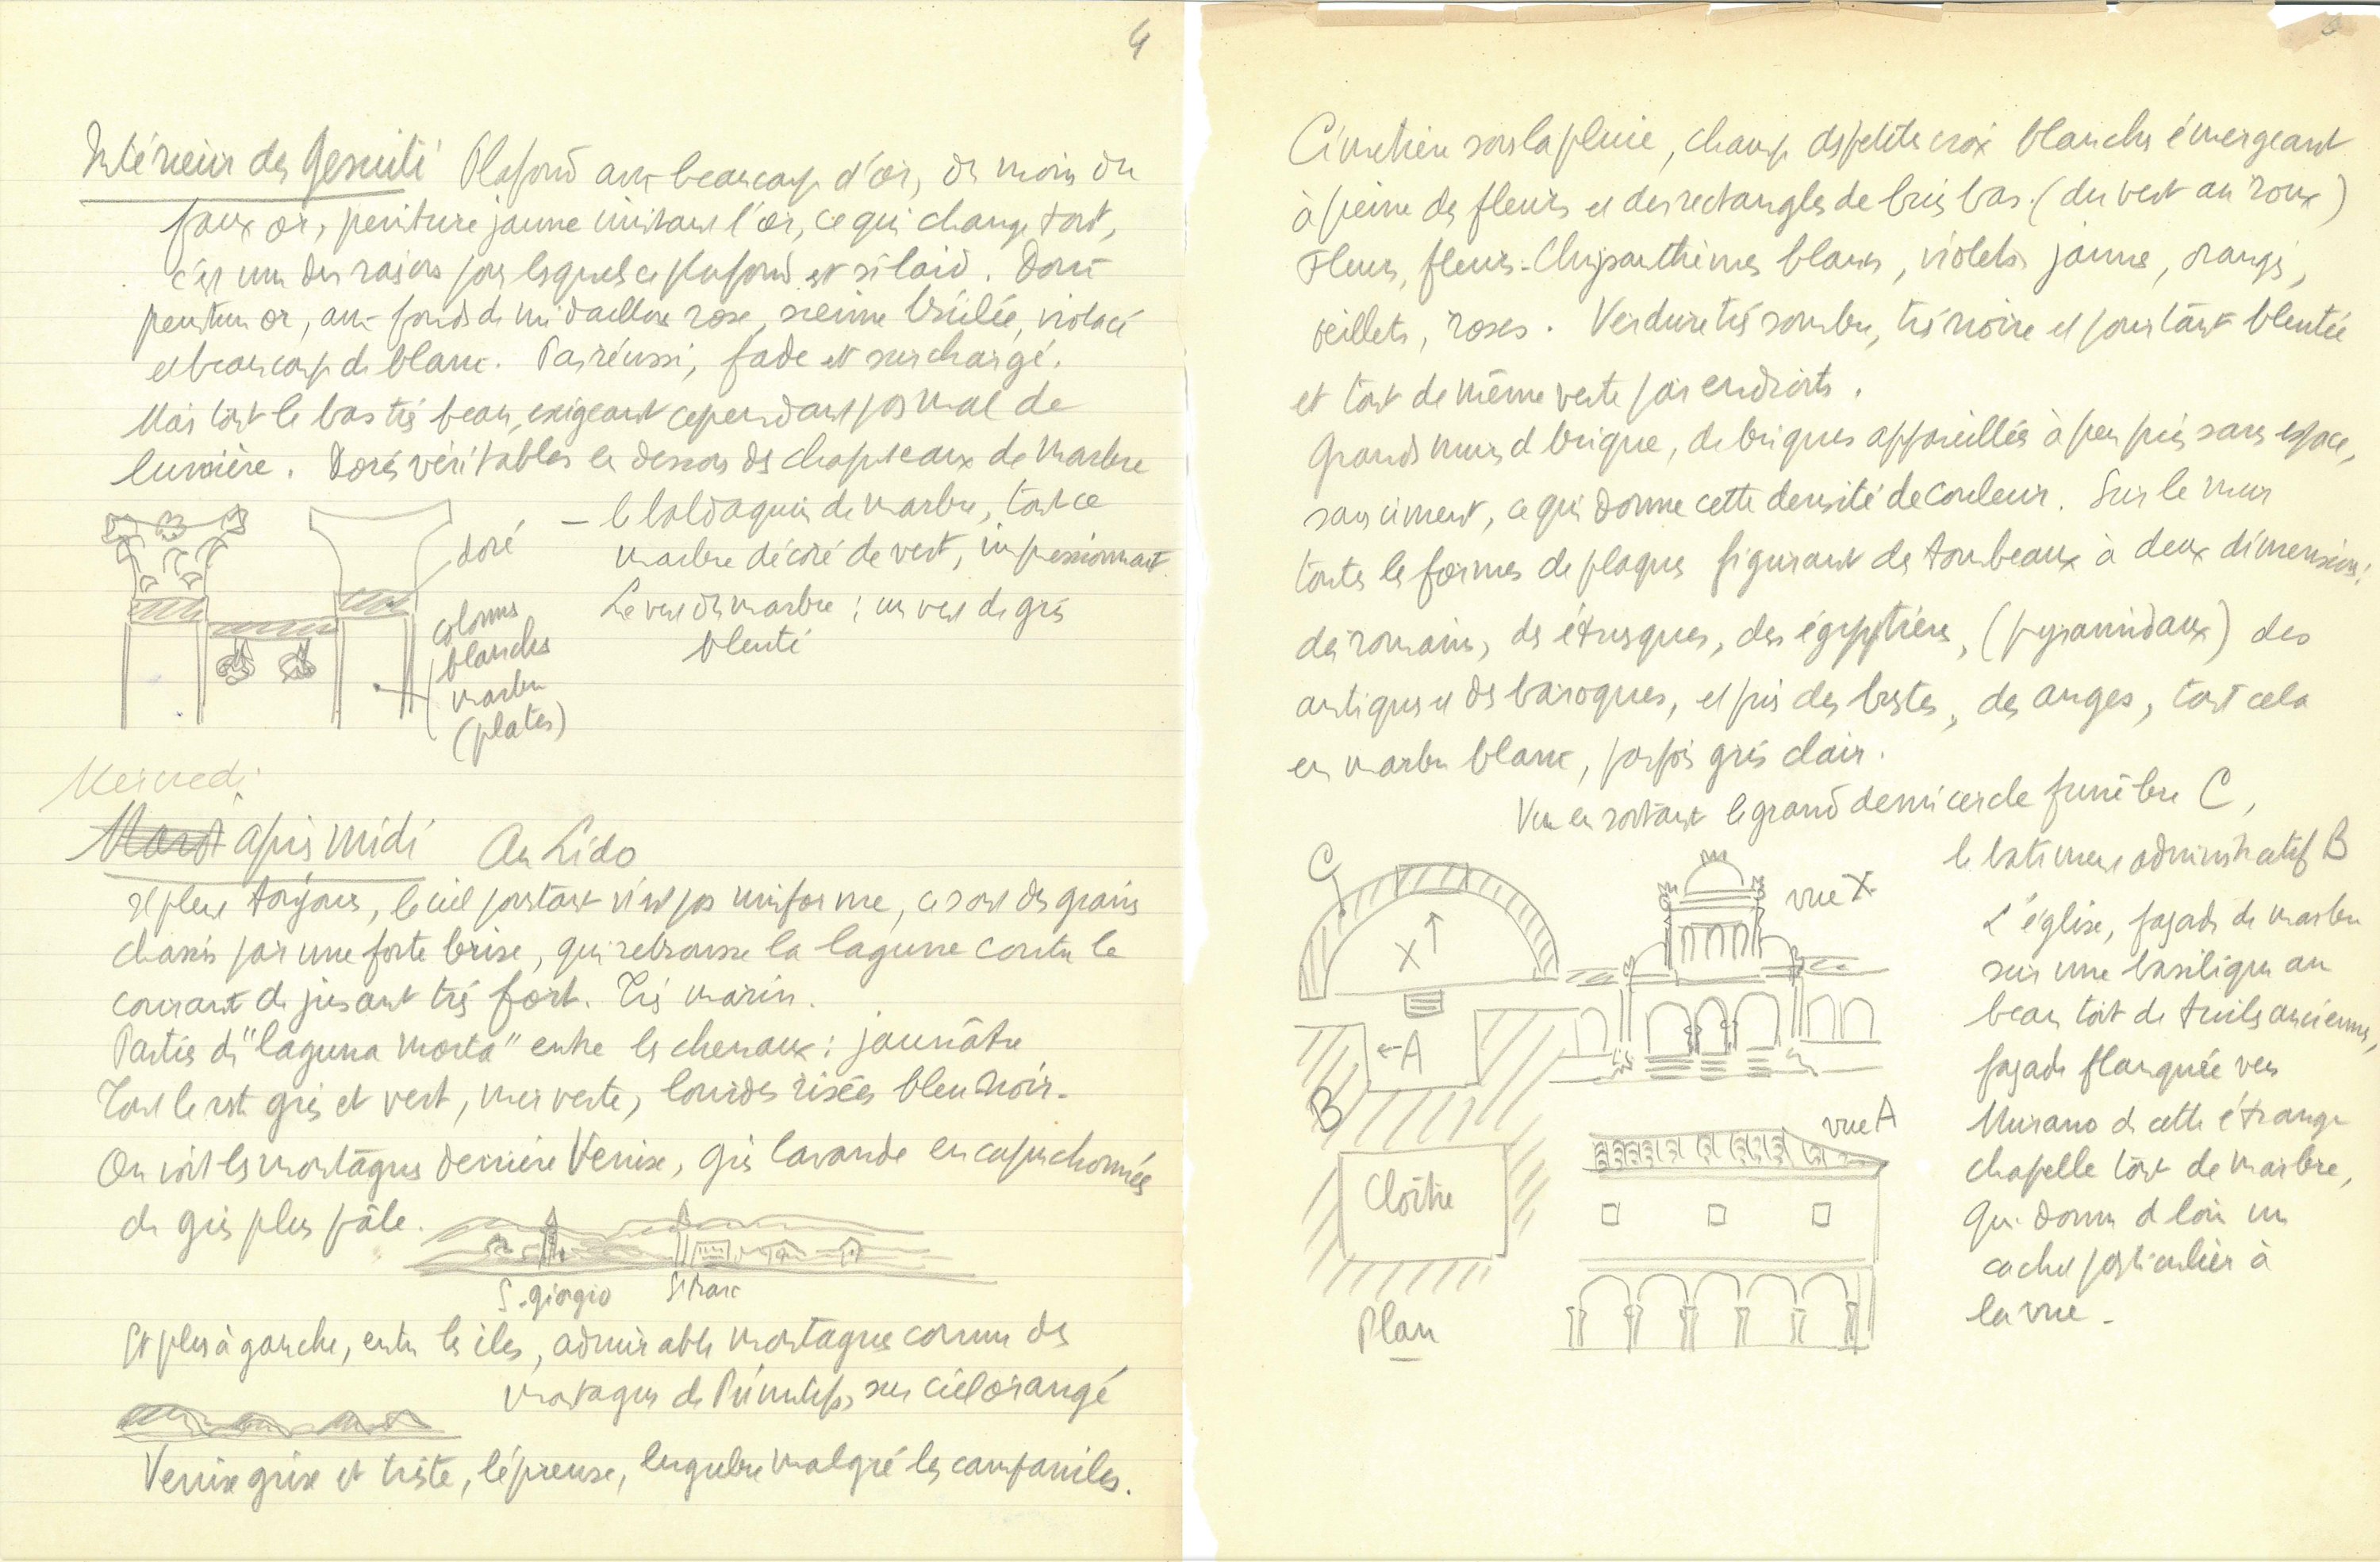 4
Intérieur des Gesuiti Plafond avec beaucoup d'or, du moins du
faux or, peinture jaune imitant l'or, ce qui change tout,
c'est une des raisons pour lesquels ce plafond est si laid. Donc
peinture or, avec fonds de médaillons rose, sienne brûlée, violacé
et beaucoup de blanc. Pas réussi, fade et surchargé.
Mais tout le bas très beau, exigeant cependant pas mal de
lumière. Dorés véritables en dessous des chapiteaux de marbre
– le baldaquin de marbre, tout ce
marbre décoré de vert, impressionnant
Le vert du marbre : un vert de gris
bleuté
doré
colonnes
blanches
marbre
(plates)
Mercredi
Mardi après midi Au Lido
Il pleut toujours, le ciel pourtant n'est pas uniforme, ce sont des grains
chassés par une forte brise, qui retrousse la lagune contre le
courant de jusant très fort. Très marin.
Parties de "laguna morta" entre les chenaux : jaunâtre
Tout le reste gris et vert, mer verte, lourdes risées bleu noir.
On voit les montagnes derrière Venise, gris lavande encapuchonnées
de gris plus pâle.
S. giorgio St Marc
Et plus à gauche, entre les îles, admirable montagne comme des
montagnes de Primitifs, sur ciel orangé
Venise grise et triste, lépreuse, lugubre malgré les campaniles.
Cimetière sous la pluie, champ des petites croix blanches émergeant
à peine des fleurs et des rectangles de buis bas. (du vert au roux)
Fleurs, fleurs. Chrysanthèmes blancs, violets jaunes, orangés,
œillets, roses. Verdure très sombre, très noire et pourtant bleutée
et tout de même verte par endroits.
Grands murs de brique, de briques appareillées à peu près sans espace,
sans ciment, ce qui donne cette densité de couleur. Sur le mur
toutes les formes de plaques figurant des tombeaux à deux dimensions:
des romains, des étrusques, des égyptiens, (pyramidaux) des
antiques et des baroques, et puis des bustes, des anges, tout cela
en marbre blanc, parfois gris clair.
Vue en sortant le grand demi cercle funèbre C,
le bâtiment administratif B
L'église, façade de marbre
sur une basilique au
beau toit de tuiles anciennes,
façade flanquée vers
Murano de cette étrange
chapelle tout de marbre,
qui donne de loin un
cachet particulier à
la vue –
C
X
vue X
← A
B
vue A
Cloître
Plan